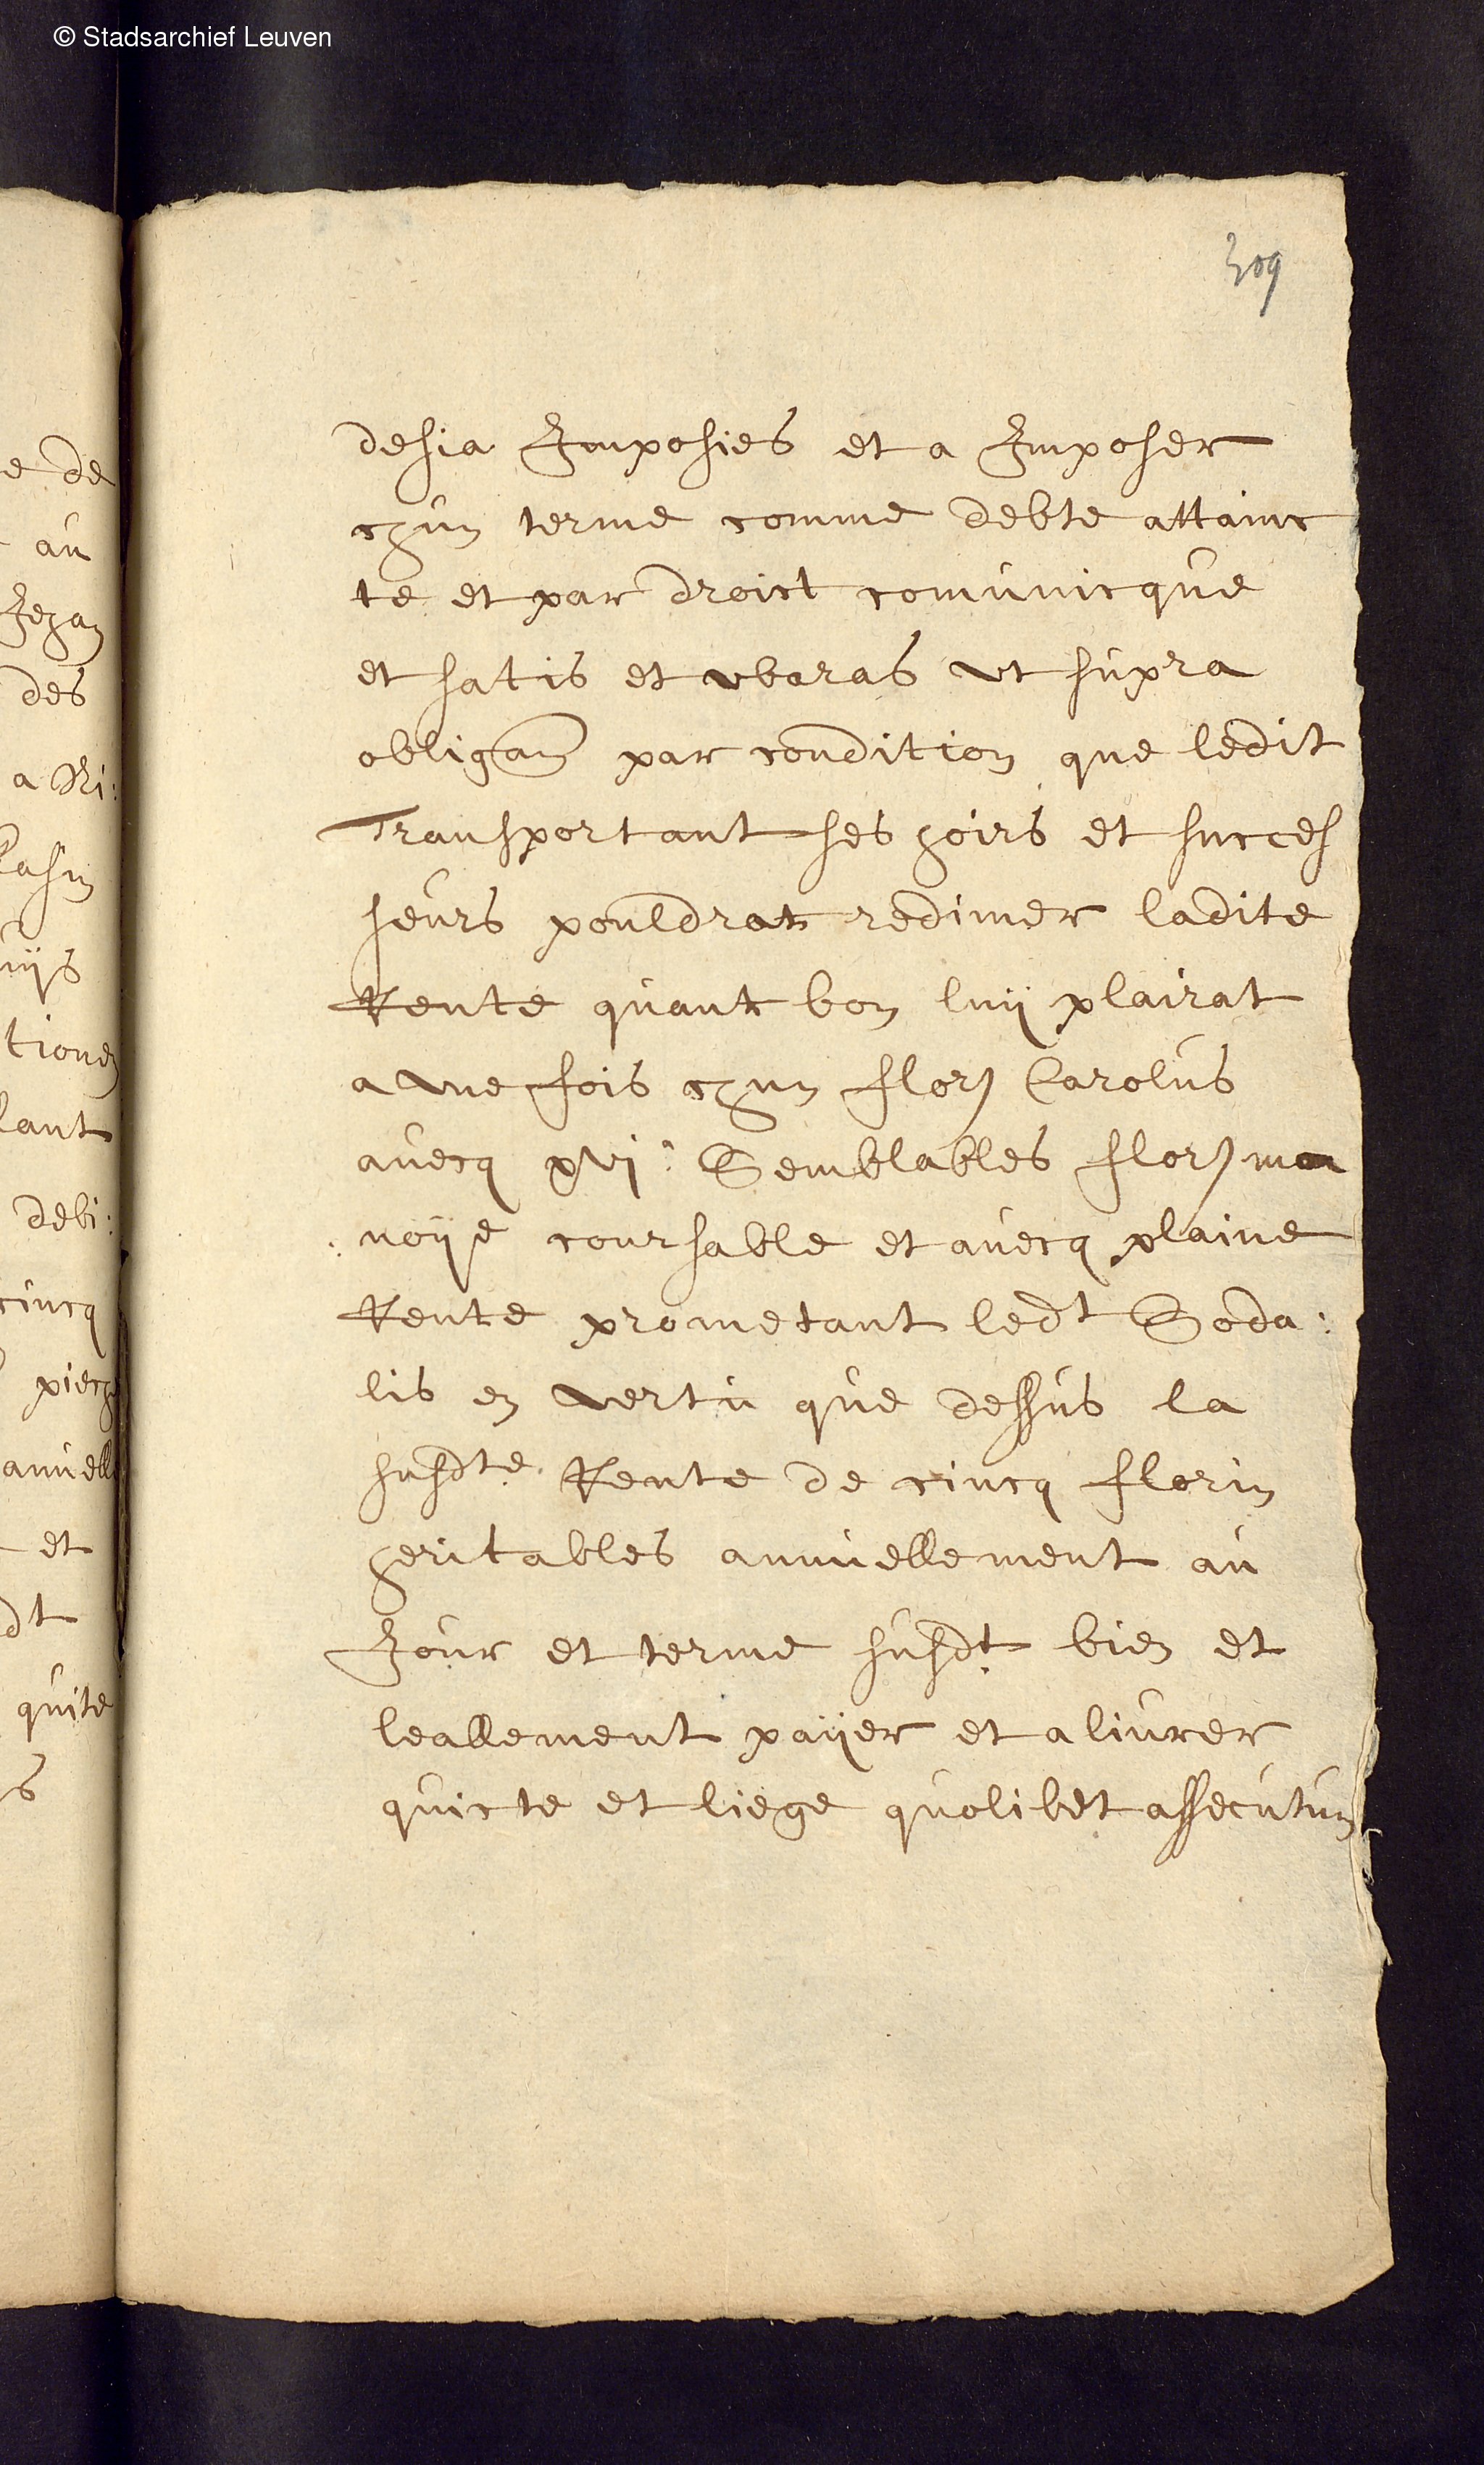 © Stadsarchief Leuven
309
desia Imposies et a Imposer
chun terme comme debte attainc
te et par droict comunicque
et satis et vbaras vt supra
obligam par condition que ledit
Transportant ses hoirs et succes
seurs pouldrat redimer ladite
Rente quant bon luÿ plairat
a vne fois chun flor Carolus
auecq xvj: Semblables flor mon
: noÿe coursable et auecq plaine
Rente prometant ledt Soda:
lis en vertu que dessus la
susdte Rente de cincq florin
heritables annuellement au
Jour et terme susdt bien et
leallement paÿer et a liurer
quicte et liege quolibet assecutum
e de
au
Jehan
des
a Ri:
ÿs
lant
debi:
cincq
et
dt
quite